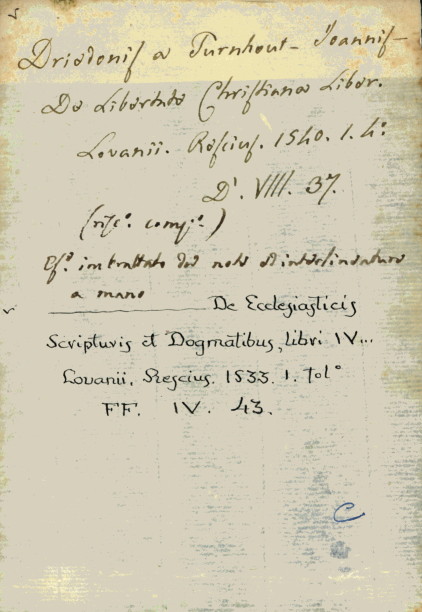 ✓
Driedonis a Turnhout - Joannis -
De Libertate Christiana Liber.
Lovanii. Rescius. 1540. 1. 4°
D'. VIII. 37.
(risc°. comp°.)
Es°. imbrattato da note ed interlineature
a mano
✓ ——— De Ecclesiasticis
Scripturis et Dogmatibus, libri IV...
Lovanii, Rescius. 1533. 1. fol°
FF. IV. 43.
C